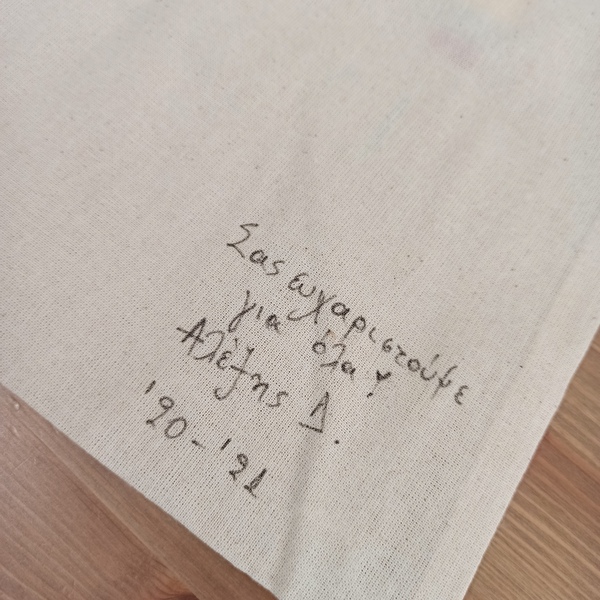 Σας ευχαριστούμε
για όλα!
Αλέξης Δ.
'20-'21